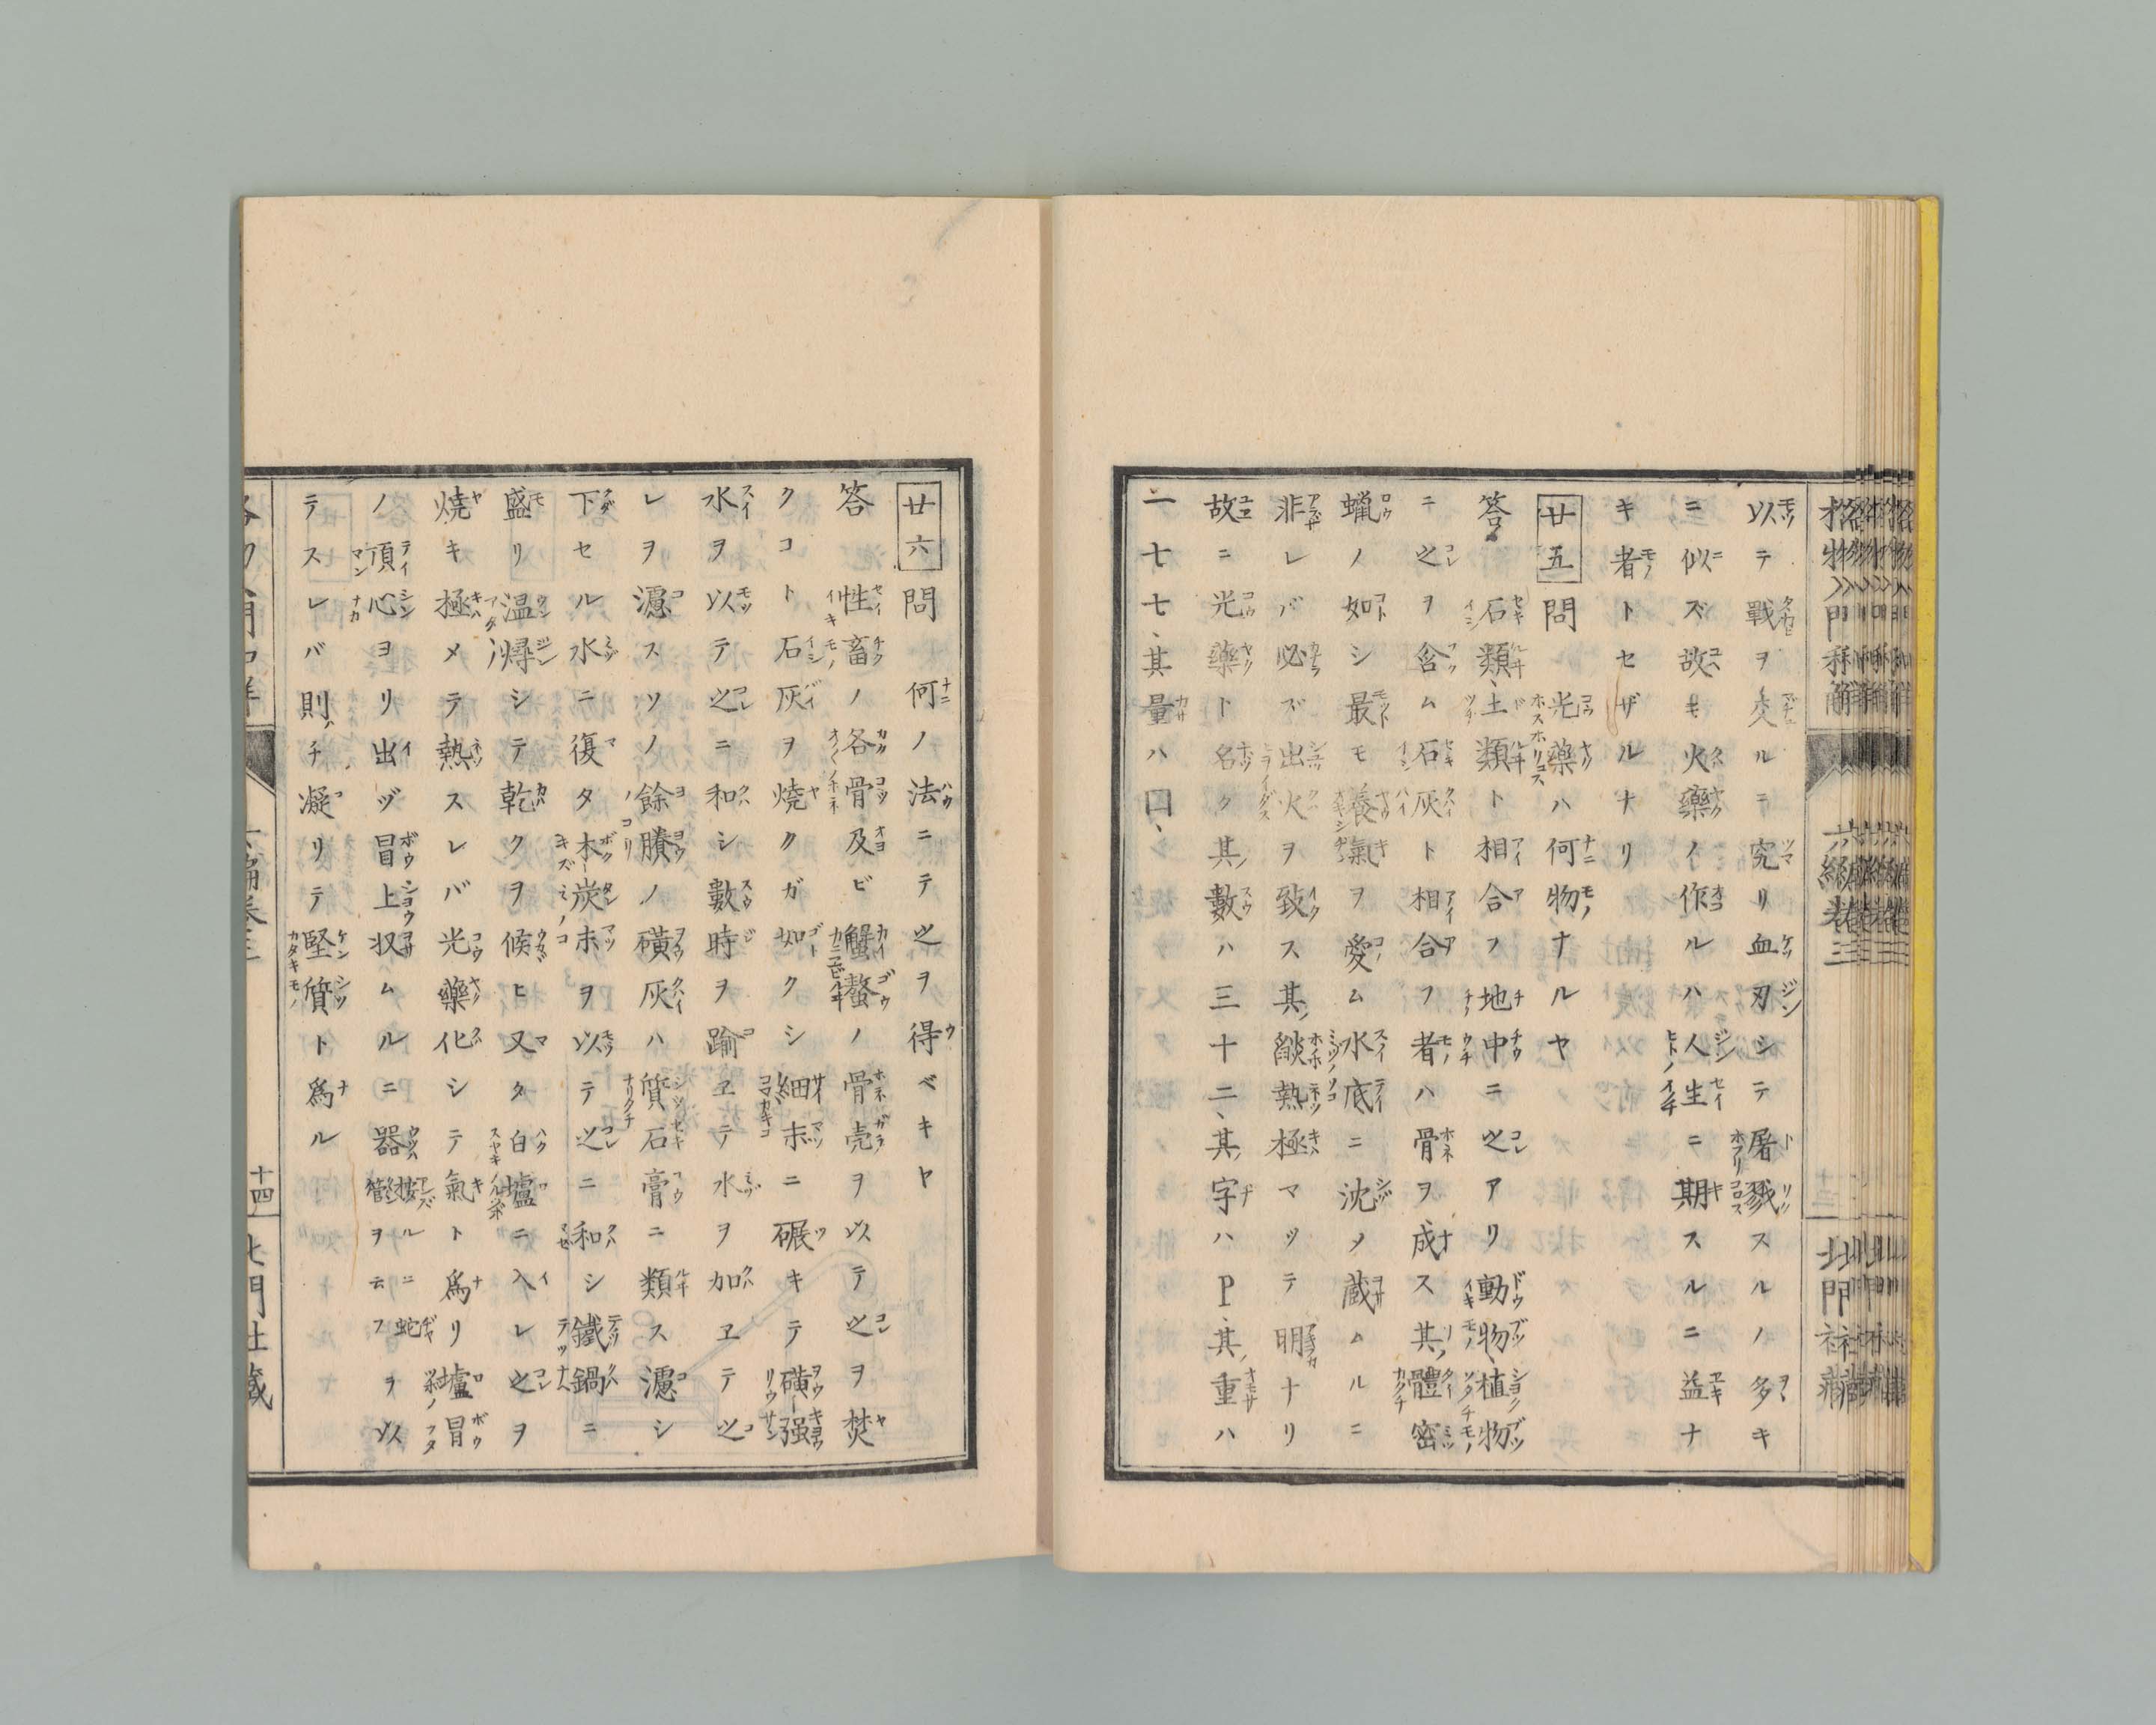 以テ戰ヲ交ルニ究リ血刃シテ屠戮スルノ多キ
ニ似ズ故ニ火藥ノ作ルハ人生ニ期スルニ益ナ
キ者トセザルナリ
廿五 問 光藥ハ何物ナルヤ
答 石類、土類ト相合フ地中ニ之アリ動物、植物
ニ之ヲ含ム石灰ト相合フ者ハ骨ヲ成ス其體密
蝋ノ如シ最モ養氣ヲ愛ム水底ニ沈メ蔵ムルニ
非レバ必ズ出火ヲ致ス其燄熱極マッテ明ナリ
故ニ光藥ト名ク其數ハ三十二、其字ハP、其重ハ
一七七、其量ハ囗、
廿六 問 何ノ法ニテ之ヲ得ベキヤ
答 性畜ノ各骨及ビ蟹螯ノ骨壳ヲ以テ之ヲ焚
クコト石灰ヲ燒クガ如クシ細末ニ碾キテ磺强
水ヲ以テ之ニ和シ數時ヲ踰エテ水ヲ加エテ之
レヲ濾スソノ餘賸ノ磺灰ハ質石膏ニ類ス濾シ
下セル水ニ復タ木炭末ヲ以テ之ニ和シ鐵鍋ニ
盛リ温燖シテ乾クヲ候ヒ又タ白壚ニ入レ之ヲ
燒キ極メテ熱スレバ光藥化シテ氣ト爲リ壚冒
ノ頂心ヨリ出ヅ冒上収ムルニ器按ズルニ蛇管ヲ云フヲ以
テスレバ則チ凝リテ堅質ト爲ル
格物入門和解
六編卷三
北門社藏
十四
北門社藏